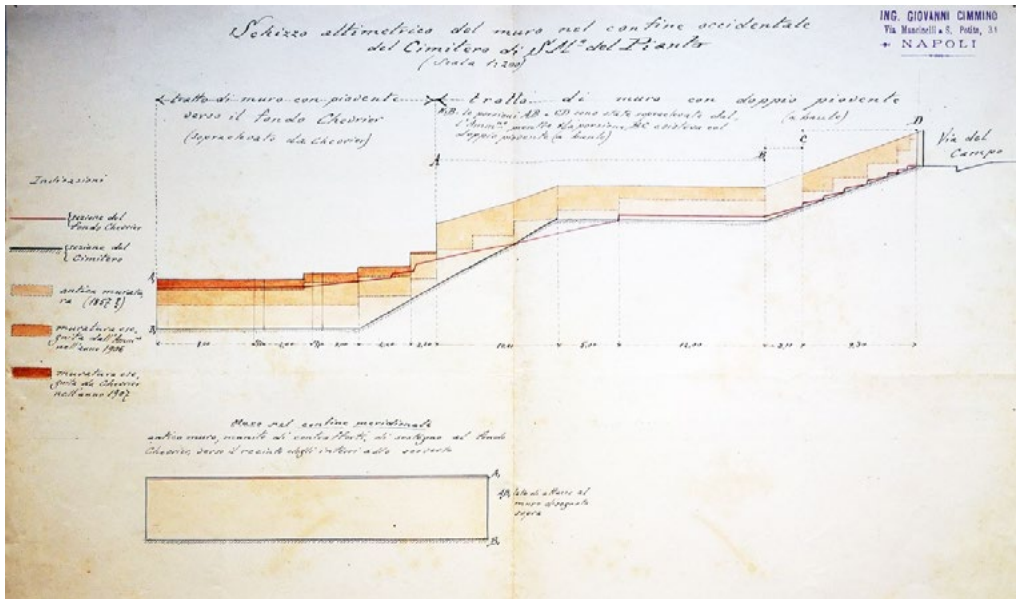 Schizzo altimetrico del muro nel confine occidentale
del Cimitero di S. Mª del Pianto
(Scala 1:200)
ING. GIOVANNI CIMMINO
Via Mancinelli a S. Potito, 31
NAPOLI
tratto di muro con piovente
verso il fondo Chevrier
(sopraelevato da Chevrier)
tratto di muro con doppio piovente
(a baule)
N.B. le porzioni AB e CD sono state sopraelevate dal
l'Amm.ne, mentre la porzione BC esisteva col
doppio piovente (a baule)
A
B
C
D
Via del
Campo
Indicazioni
sezione del
fondo Chevrier
sezione del
Cimitero
antica muratu
ra (1857 ?)
muratura ese
guita dall'Amm.ne
nell'anno 1906
muratura ese
guita da Chevrier
nell'anno 1907
A,
B,
2,00
2,00
5,00
12,00
2,10
Muro nel confine meridionale
antico muro, munito di contrafforti, di sostegno al fondo
Chevrier, verso il recinto degli interri allo scoverto
A,
B,
A,B, lato di attacco al
muro disegnato
sopra